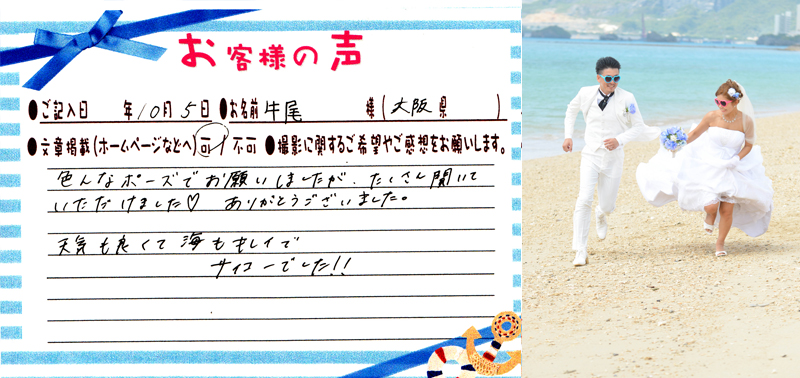 お客様の声
●ご記入日 年10月5日●お名前 牛尾 様(大阪県)
●文章掲載(ホームページなどへ)可/不可 ●撮影に関するご希望やご感想をお願いします。
色んなポーズでお願いしましたが、たくさん聞いて
いただけました♡ ありがとうございました。
天気も良くて海もキレイで
サイコーでした!!